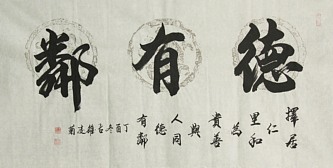 德有鄰
擇居
仁
里和
為
貴善
與
人同
德
有鄰
丁酉冬古雄凌菊